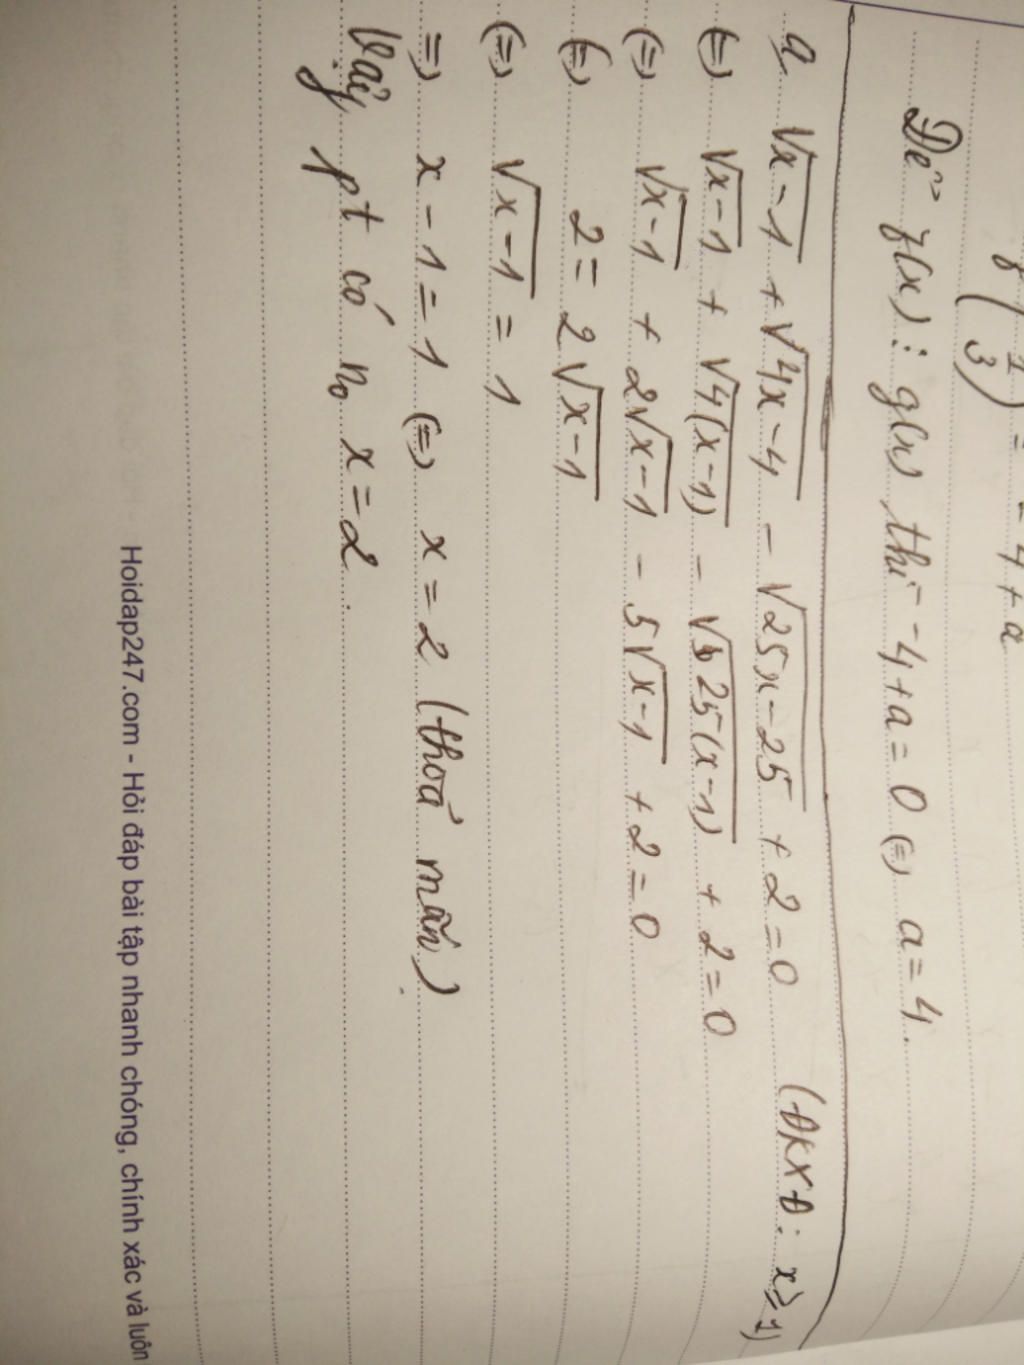 f(1/3) = -4+a
Để f(x) ⋮ g(x) thì -4+a=0 (=) a=4.
a, √x-1 + √4x-4 - √25x-25 + 2=0 (ĐKXĐ: x≥1)
(=) √x-1 + √4(x-1) - √25(x-1) + 2=0
(=) √x-1 + 2√x-1 - 5√x-1 + 2=0
(=) 2= 2√x-1
(=) √x-1 = 1
=) x-1=1 (=) x=2 (thoả mãn)
Vậy pt có n₀ x=2.
Hoidap247.com - Hỏi đáp bài tập nhanh chóng, chính xác và luôn